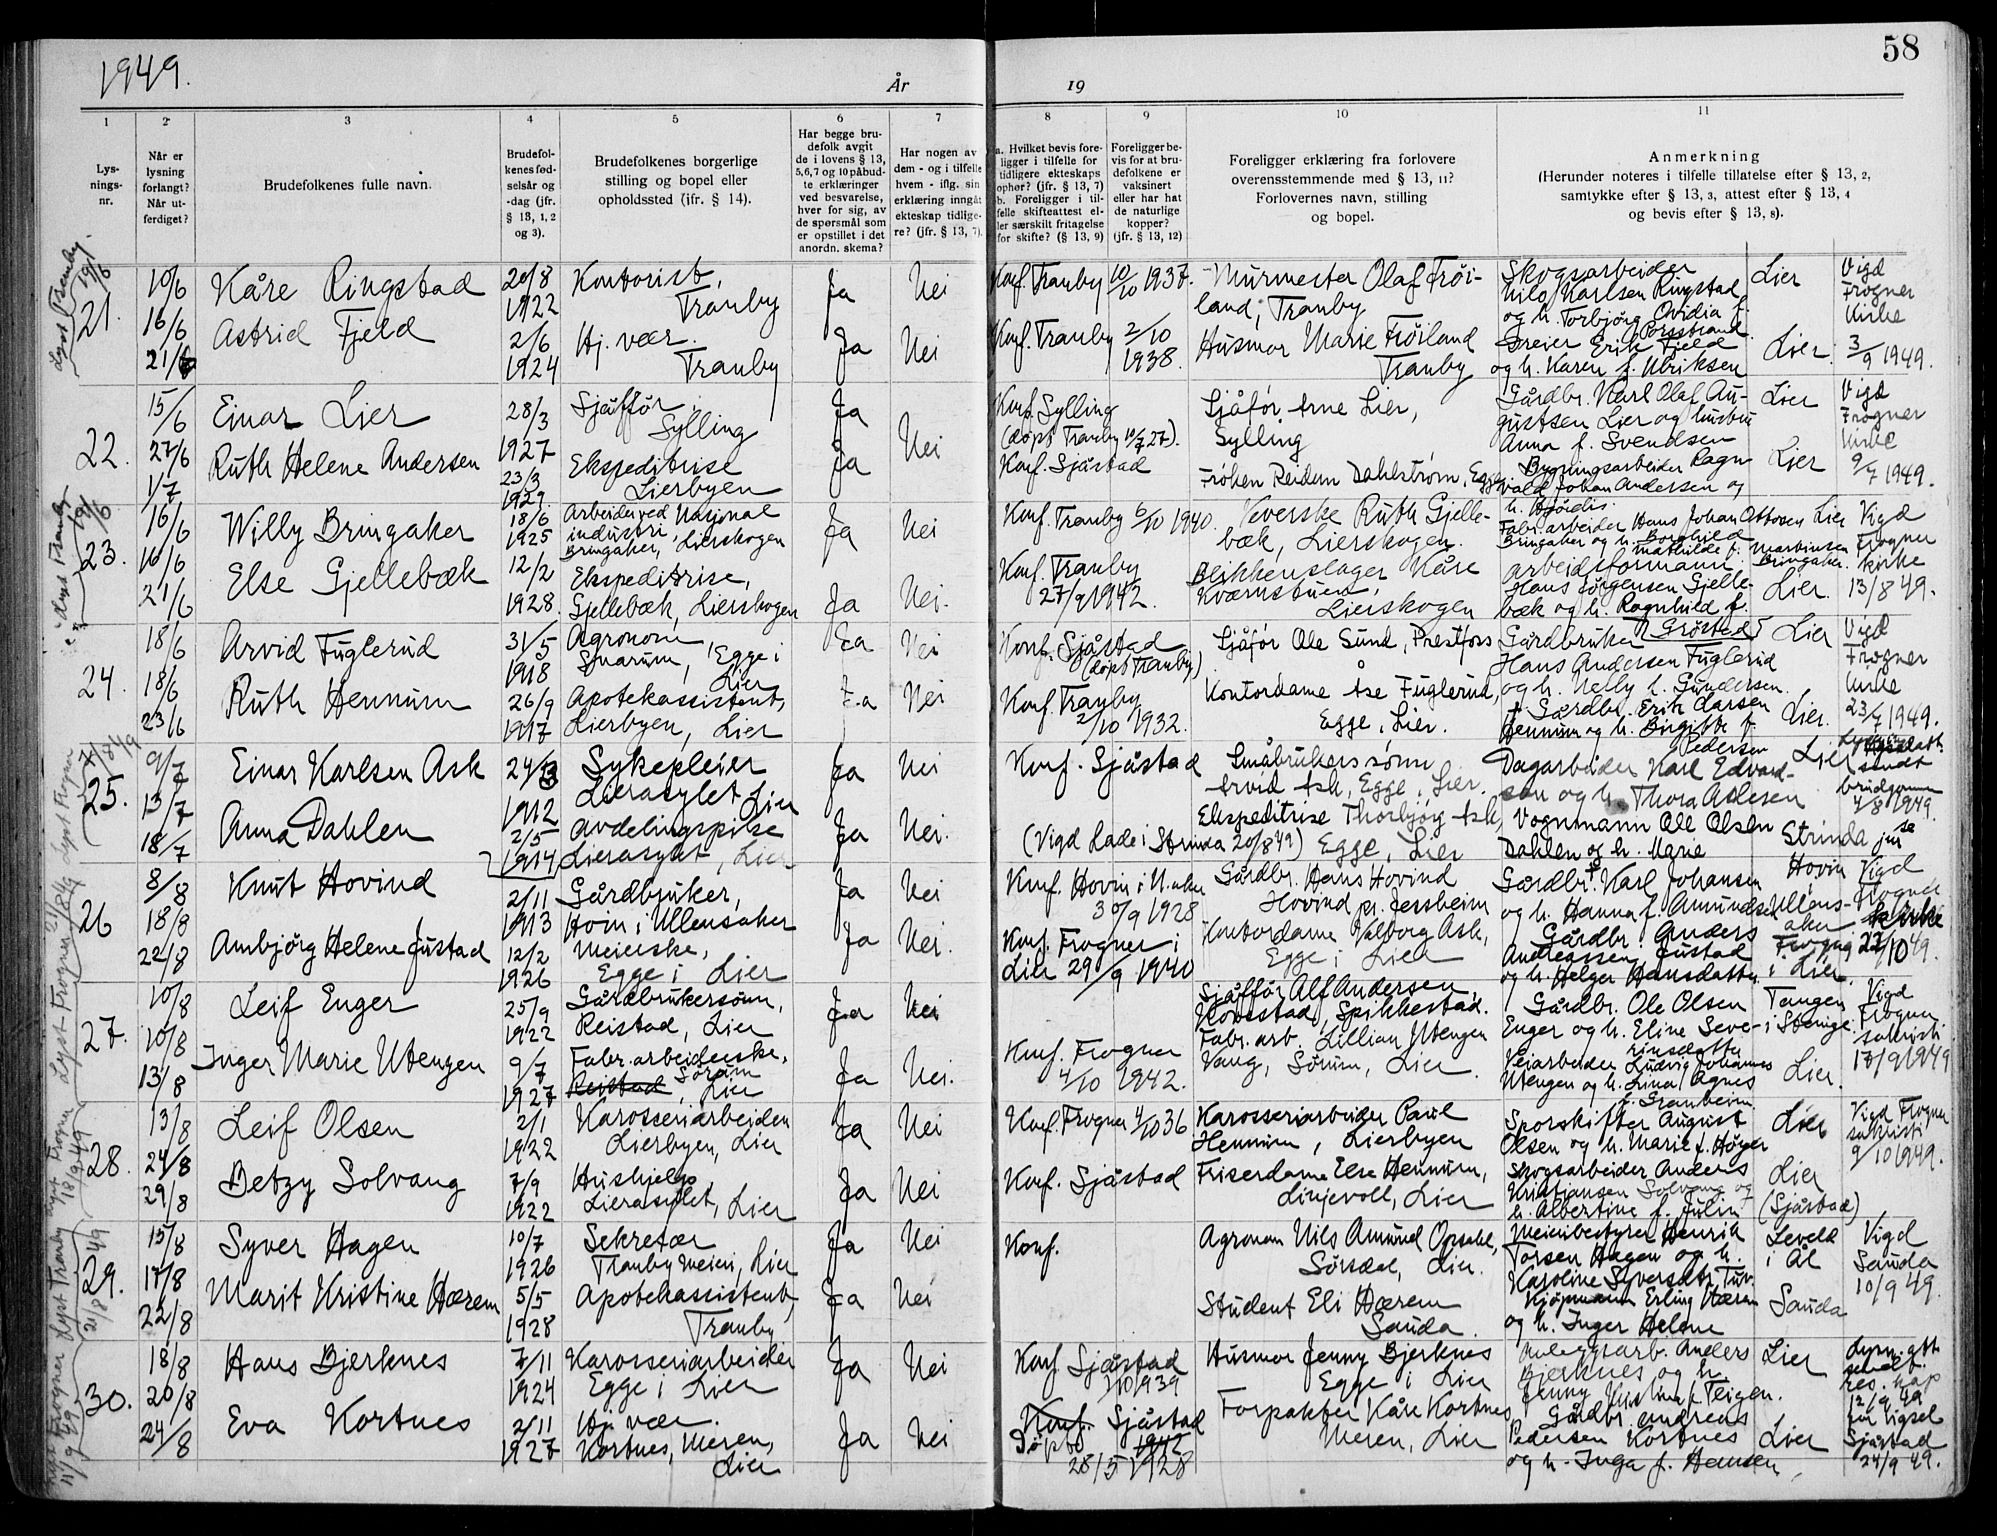 1949.
År
19
58
1
2
3
4
5
6
7
8
9
10
11
Lys-
nings-
nr.
Når er
lysning
forlangt?
Når ut-
ferdiget?
Brudefolkenes fulle navn.
Brudefol-
kenes fød-
selsår og
-dag (jfr.
§ 13, 1, 2
og 3).
Brudefolkenes borgerlige
stilling og bopel eller
opholdssted (jfr. § 14).
Har begge bru-
defolk avgit
de i lovens § 13,
5, 6, 7 og 10 påbud-
te erklæringer
ved besvarelse,
hver for sig, av
de spørsmål som
er opstillet i det
anordn. skema?
Har nogen av
dem - og i tilfelle
hvem - iflg. sin
erklæring inngåt
ekteskap tidlige-
re? (jfr. § 13, 7)
a. Hvilket bevis fore-
ligger i tilfelle for
tidligere ekteskaps
ophør? (jfr. § 13, 7)
b. Foreligger i til-
felle skifteattest el-
ler særskilt fritagelse
for skifte? (§ 13, 9)
Foreligger be-
vis for at bru-
defolkene er
vaksinert
eller har hat
de naturlige
kopper?
(jfr. § 13, 12)
Foreligger erklæring fra forlovere
overensstemmende med § 13, 11?
Forlovernes navn, stilling
og bopel.
Anmerkning
(Herunder noteres i tilfelle tillatelse efter § 13, 2,
samtykke efter § 13, 3, attest efter § 13, 4
og bevis efter § 13, 8).
Lyst Tranby
19/6
21.
10/6
16/6
21/6
Kåre Ringstad
Astrid Fjeld
20/8
1922
2/6
1924
Kontorist,
Tranby
Hj. vær.
Tranby
Ja
Ja
Nei
Nei
Konf. Tranby 10/10 1937.
Konf. Tranby 2/10
1938.
Murmester Olaf Frøi-
land, Tranby
Husmor Marie Frøiland
Tranby
Skogsarbeider
Nils Karlsen Ringstad
og h. Torbjørg Ovidia f.
Porsstrand
Greier Erik Fjeld
og h. Karen f. Ulriksen
Lier
Lier
Vigd
Frogner
kirke
3/9 1949.
22.
15/6
27/6
1/7
Einar Lier
Ruth Helene Andersen
28/3
1927
23/3
1929
Sjåffør
Sylling
Ekspeditrise
Lierbyen
Ja
Ja
Nei
Konf. Sylling
(døpt Tranby 10/7 27).
Konf. Sjåstad
Sjåfør Arne Lier,
Sylling
Frøken Reidun Dahlstrøm, Egge
Gårdbr. Karl Olaf Au-
gustsen Lier og hustru
Anna f. Svendsen
Bygningsarbeider Ragn-
vald Johan Andersen og
h. Hjørdis.
Lier
Lier
Vigd
Frogner
kirke
9/7 1949.
23.
16/6
16/6
21/6
Willy Bringaker
Else Gjellebæk
18/6
1925
12/2
1928
Arbeider ved Nasjonal
industri,
Bringaker, Lierskogen
Ekspeditrise,
Gjellebæk, Lierskogen
Ja
Ja
Nei
Nei.
Konf. Tranby 6/10 1940.
Konf. Tranby
27/9 1942.
Veverske Ruth Gjelle-
bæk, Lierskogen.
Blikkenslager Kåre
Kværnstuen,
Lierskogen
Fabr. arbeider Hans Johan Ottosen
Bringaker og h. Borghild
Mathilde f. Martinsen
Bringaker.
arbeidsformann
Hans Jørgensen Gjelle-
bæk og h. Ragnhild f.
Grøstad
Lier
Lier.
Vigd
Frogner
kirke
13/8 49.
24.
18/6
18/6
23/6
Arvid Fuglerud
Ruth Hennum
31/5
1918
26/9
1917
Agronom
Snarum, Egge i
Lier
Apotekassistent,
Lierbyen, Lier
Ja
Ja
Nei
Nei
Konf. Sjåstad
(døpt Tranby)
Konf. Tranby
2/10 1932.
Sjåfør Ole Sund, Prestfoss
Kontordame Åse Fuglerud,
Egge, Lier.
Gårdbruker
Hans Andersen Fuglerud
og h. Nelly f. Gundersen.
Gårdbr. Erik Larsen
Hennum og h. Birgitte f.
Pedersen
Lier
Lier.
Vigd
Frogner
kirke
23/7 1949.
25.
9/7
13/7
18/7
Einar Karlsen Ask
Anna Dahlen
24/3
1912
2/5
1914
Sykepleier
Lierasylet Lier
Avdelingspike
Lierasylet, Lier
Ja
Ja
Nei
Nei.
Konf. Sjåstad
(Vigd Lade i Strinda 20/8 49)
Småbrukers sønn
Arvid Ask, Egge, Lier.
Ekspeditrise Thorbjørg Ask,
Egge, Lier
Dagarbeider Karl Edvard-
sen og h. Thora Aslesen
Vognmann Ole Olsen
Dahlen og h. Marie
Lier
Strinda
sendt
brudgommen
4/8 1949.
26
8/8
18/8
22/8
Knut Hovind
Ambjørg Helene Justad
2/11
1913
12/2
1926
Gårdbruker,
Hovin i Ullensaker
Meierske,
Egge i Lier
Ja
Ja
Nei
Nei.
Konf. Hovin i U.aker
30/9 1928
Konf. Frogner i
Lier 29/9 1940
Gårdbr. Hans Hovind
Hovind pr. Jessheim
Kontordame Valborg Ask,
Egge i Lier
Gårdbr. Karl Johansen
og h. Hanna f. Amundsen
Gårdbr. Anders
Andreassen Justad
og h. Helger Hansdatter
Hovin
Ullens-
aker
Frogner
i Lier
Vigd
Frogner
kirke
22/10 49.
27.
10/8
10/8
13/8
Leif Enger
Inger Marie Utengen
25/9
1922
9/7
1927
Gårdbrukersønn,
Reistad, Lier
Fabr. arbeiderske,
Sørum
Reistad, Lier
Ja
Ja
Nei
Nei.
Konf. Frogner
4/10 1942.
Sjåffør Alf Andersen
Hovestad, Spikkestad.
Fabr. arb. Lillian Utengen
Vang, Sørum, Lier
Gårdbr. Ole Olsen
Enger og h. Eline Seve-
rinsdatter
Veiarbeider Ludvig Johannes
Utengen og h. Lina Agnes
f. Granheim
Tangen
i Stange
Lier.
Vigd
Frogner
sakristi
17/9 1949
28.
13/8
24/8
29/8
Leif Olsen
Betzy Solvang
2/1
1922
7/9
1922
Karosseriarbeider
Lierbyen, Lier
Hushjelp
Lierasylet, Lier
Ja
Ja
Nei
Nei
Konf. Frogner 4/10 36
Konf. Sjåstad
Karosseriarbeider Paul
Hennum, Lierbyen
Friserdame Else Hennum,
Linjevoll, Lier
Sporskifter August
Olsen og h. Marie f. Høger
Skogsarbeider Anders
Kristiansen Solvang og
h. Albertine f. Julin
Lier
Lier
(Sjåstad)
Vigd Frogner
sakristi
9/10 1949.
29.
15/8
17/8
22/8
Syver Hagen
Marit Kristine Hærem
10/7
1926
5/5
1928
Sekretær
Tranby meieri, Lier
Apotekassistent,
Tranby
Ja
Ja
Nei
Nei
Konf.
Agronom Nils Amund Opsahl,
Sørsdal, Lier.
Student Eli Hærem
Sauda.
Meieribestyrer Henrik
Torsen Hagen og h.
Karoline Syversdtr.
Kjøpmann Erling Hærem
og h. Inger Helene
Leveld
i Ål
Sauda
Vigd
Sauda
10/9 49.
30.
18/8
20/8
24/8
Hans Bjerknes
Eva Kortnes
7/11
1924
2/11
1927
Karosseriarbeider
Egge i Lier
Hj. vær.
Kortnes, Meren,
Lier
Ja
Ja
Nei
Nei
Konf Sjåstad
1/10 1939
Konf. Sjåstad
Døpt 1942
28/5 1928
Husmor Jenny Bjerknes
Egge i Lier
Forpakter Kåre Kortnes
Meren, Lier
Anleggsarb. Anders
Bjerknes og h.
Jenny Kristine f. Teigen.
Gårdbr. Andreas
Pedersen Kortnes
og h. Inga f. Hansen
Lier
Lier
Lysn. att.
sendt
res. kap
12/9 49
for vigsel
Sjåstad
24/9 49.